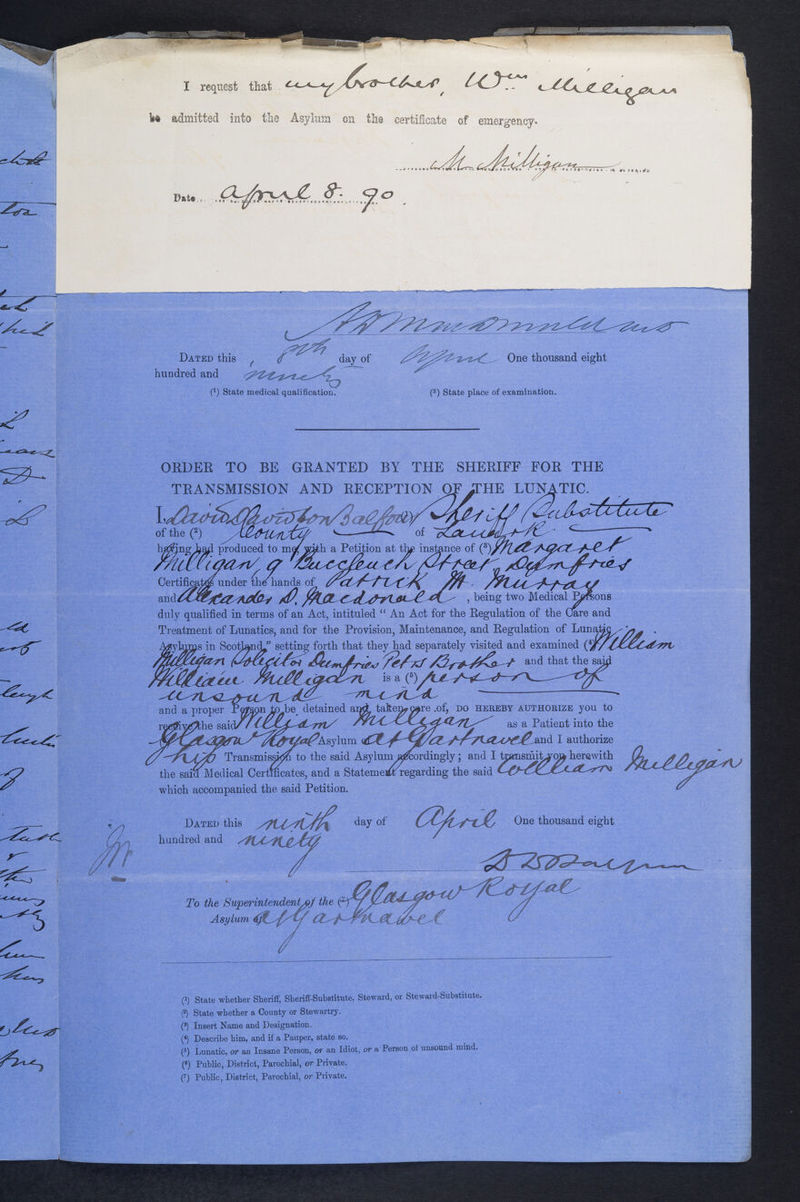 I request that my brother, Wm. Milligan
be admitted into the Asylum on the certificate of emergency.
M. Milligan
Date April 8. 90.
DATED this day of April One thousand eight
hundred and ninety
(1) State medical qualification. (2) State place of examination.
ORDER TO BE GRANTED BY THE SHERIFF FOR THE
TRANSMISSION AND RECEPTION OF THE LUNATIC.
I, David Davidson Balfour Sheriff Substitute
of the (2) County of Lanark
having had produced to me, with a Petition at the instance of (3) Margaret
Milligan, 9 Buccleuch Street Dumfries
Certificates under the hands of Patrick M. Murray
and Alexander D. Macdonald, being two Medical Persons
duly qualified in terms of an Act, intituled “ An Act for the Regulation of the Care and
Treatment of Lunatics, and for the Provision, Maintenance, and Regulation of Lunatic
Asylums in Scotland,” setting forth that they had separately visited and examined (4) William
Milligan Solicitor Dumfries Petrs Brother and that the said
William Milligan is a (5) person of
unsound mind
and a proper Person to be detained and taken care of, DO HEREBY AUTHORIZE you to
receive the said William Milligan as a Patient into the
Glasgow Royal Asylum at Gartnavel and I authorize
his Transmission to the said Asylum accordingly; and I transmit you herewith
the said Medical Certificates, and a Statement regarding the said William Milligan
which accompanied the said Petition.
DATED this ninth day of April One thousand eight
hundred and ninety
D D Balfour
To the Superintendent of the (7) Glasgow Royal
Asylum at Gartnavel
(1) State whether Sheriff, Sheriff-Substitute, Steward, or Steward-Substitute.
(2) State whether a County or Stewartry.
(3) Insert Name and Designation.
(4) Describe him, and if a Pauper, state so.
(5) Lunatic, or an Insane Person, or an Idiot, or a Person of unsound mind.
(6) Public, District, Parochial, or Private.
(7) Public, District, Parochial, or Private.